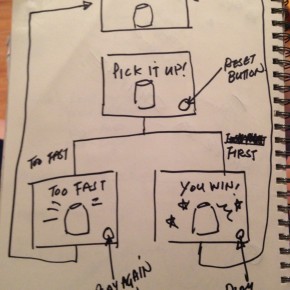 PICK IT UP!
RESET
BUTTON
TOO FAST
FIRST
TOO FAST
YOU WIN!
PLAY AGAIN
PLAY